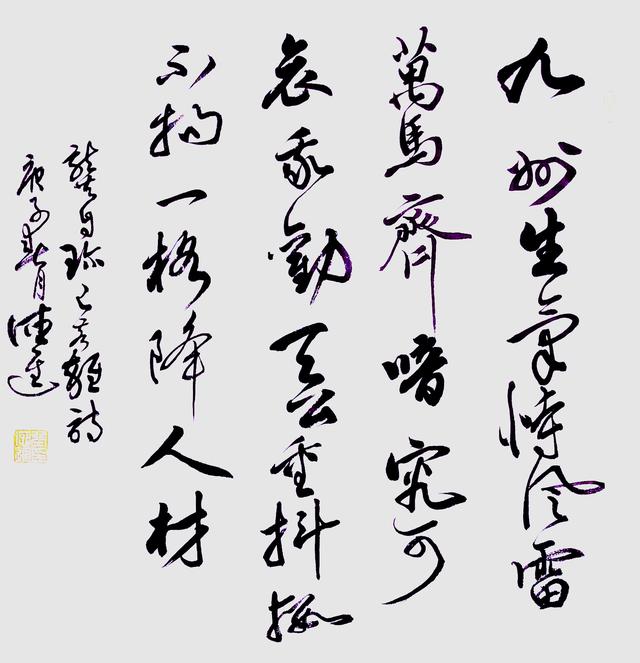 九州生氣恃風雷
萬馬齊喑究可
哀我勸天公重抖擻
不拘一格降人材
龔自珍己亥雜詩
庚子春月